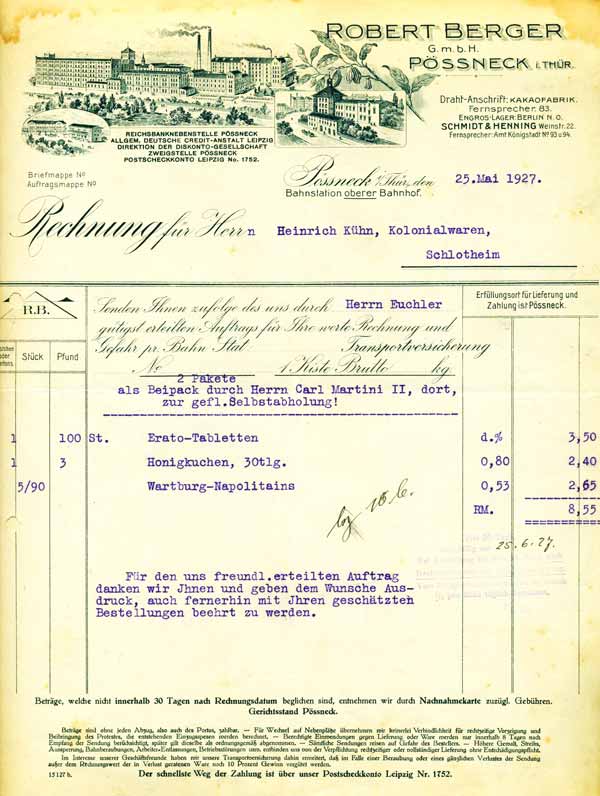 ROBERT BERGER
G.m.b.H.
PÖSSNECK i. THÜR.
Draht-Anschrift: KAKAOFABRIK.
Fernsprecher: 83.
ENGROS-LAGER: BERLIN N.O.
SCHMIDT & HENNING Weinstr. 22.
Fernsprecher: Amt Königstadt No 93 u. 94.
REICHSBANKNEBENSTELLE PÖSSNECK
ALLGEM. DEUTSCHE CREDIT-ANSTALT LEIPZIG
DIREKTION DER DISKONTO-GESELLSCHAFT
ZWEIGSTELLE PÖSSNECK
POSTSCHECKKONTO LEIPZIG No. 1752.
Briefmappe No
Auftragsmappe No
Pössneck i/Thür., den 25.Mai 1927.
Bahnstation oberer Bahnhof.
Rechnung für Herrn Heinrich Kühn, Kolonialwaren,
Schlotheim
R.B.
Senden Ihnen zufolge des uns durch Herrn Euchler
gütigst erteilten Auftrags für Ihre werte Rechnung und
Gefahr pr. Bahn Stat. Transportversicherung
No 1 Kiste Brutto kg
Erfüllungsort für Lieferung und
Zahlung ist Pössneck.
Stück Pfund
2 Pakete
als Beipack durch Herrn Carl Martini II, dort,
zur gefl.Selbstabholung!
1 100 St. Erato-Tabletten d.% 3,50
1 3 Honigkuchen, 30tlg. 0,80 2,40
5/90 Wartburg-Napolitains 0,53 2,65
RM. 8,55
25.6.27.
Für den uns freundl.erteilten Auftrag
danken wir Jhnen und geben dem Wunsche Aus-
druck, auch fernerhin mit Jhren geschätzten
Bestellungen beehrt zu werden.
Beträge, welche nicht innerhalb 30 Tagen nach Rechnungsdatum beglichen sind, entnehmen wir durch Nachnahmekarte zuzügl. Gebühren.
Gerichtsstand Pössneck.
Beträge sind ohne jeden Abzug, also auch des Portos, zahlbar. — Für Wechsel auf Nebenplätze übernehmen wir keinerlei Verbindlichkeit für rechtzeitige Vorzeigung und
Beibringung des Protestes, die entstehenden Einzugsspesen werden berechnet. — Berechtigte Einwendungen gegen Lieferung oder Ware werden nur innerhalb 8 Tagen nach
Empfang der Sendung berücksichtigt, später gilt dieselbe als ordnungsgemäß abgenommen. — Sämtliche Sendungen reisen auf Gefahr des Bestellers. — Höhere Gewalt, Streiks,
Aussperrung, Bahnberaubungen, Arbeiter-Entlassungen, Betriebsstörungen usw. entbinden uns von der Verpflichtung rechtzeitiger oder vollständiger Lieferung ohne Entschädigungspflicht.
Im Interesse unserer Geschäftsfreunde haben wir unsere Transportversicherung dahin erweitert, daß im Falle einer Beraubung oder eines gänzlichen Verlustes der Sendung
außer dem Rechnungswert der in Verlust geratenen Ware noch 10 Prozent Gewinn vergütet werden.
15127 b. Der schnellste Weg der Zahlung ist über unser Postscheckkonto Leipzig Nr. 1752.